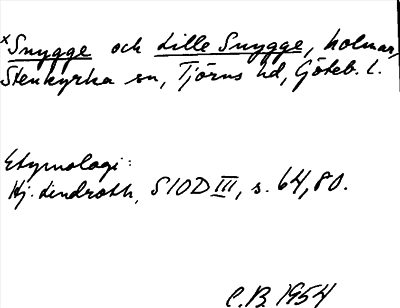 ×Snygge och Lille Snygge, holmar,
Stenkyrka sn, Tjörns hd, Göteb. l.
Etymologi:
Hj. Lindroth, SIOD III, s. 64, 80.
C.B. 1954